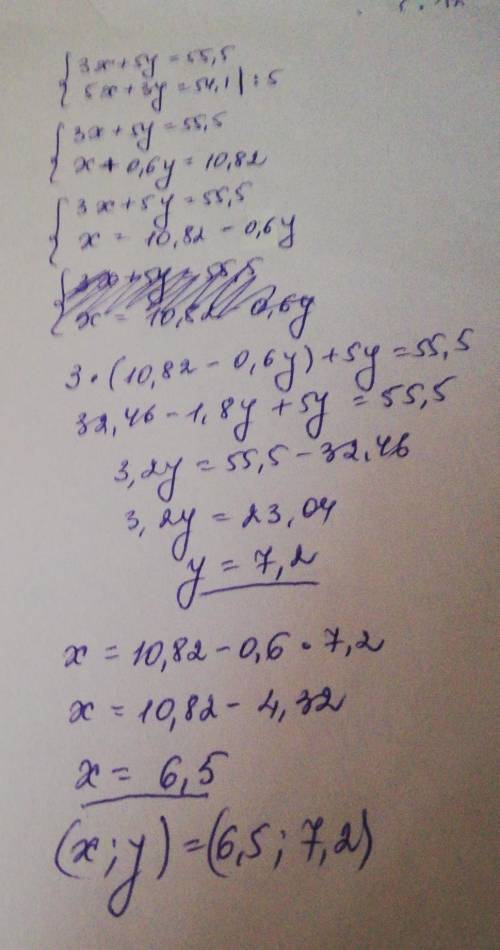 { 3x+5y=55,5
5x+3y=54,1 | :5
{ 3x+5y=55,5
x+0,6y=10,82
{ 3x+5y=55,5
x = 10,82-0,6y
{ 3x+5y=55,5
x = 10,82 - 0,6y
3·(10,82-0,6y)+5y=55,5
32,46-1,8y+5y=55,5
3,2y=55,5-32,46
3,2y=23,04
y=7,2
x=10,82-0,6·7,2
x=10,82-4,32
x= 6,5
(x;y)=(6,5;7,2)